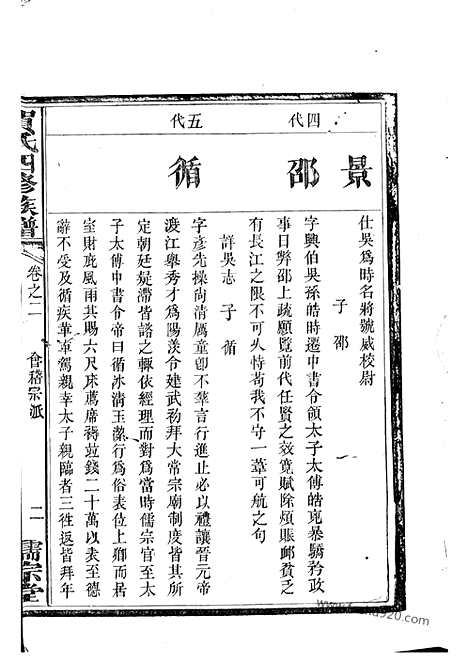 四代
景
仕吳爲時名將號威校尉
子 邵
邵
字興伯吳孫皓時遷中書令領太子太傅皓兇暴驕矜政
事日弊邵上疏願覽前代任賢之效寬賦除煩賑邮貧乏
有長江之限不可久恃苟我不守一葦可航之句
詳吳志 子 循
五代
循
字彥先操尚清厲童齓不羣言行進止必以禮讓晉元帝
渡江舉秀才爲陽羨令建武初拜大常宗廟制度皆其所
定朝廷疑滯皆諮之輒依經理而對爲當時儒宗官至太
子太傅中書令帝曰循冰清玉潔行爲俗表位上卿而居
室財庇風雨其賜六尺床薦席褥並錢二十萬以表至德
辭不受及循疾革車駕親幸太子親臨者三往返皆拜年
賀氏四修族譜
卷之二
會稽宗派
二
儒宗堂